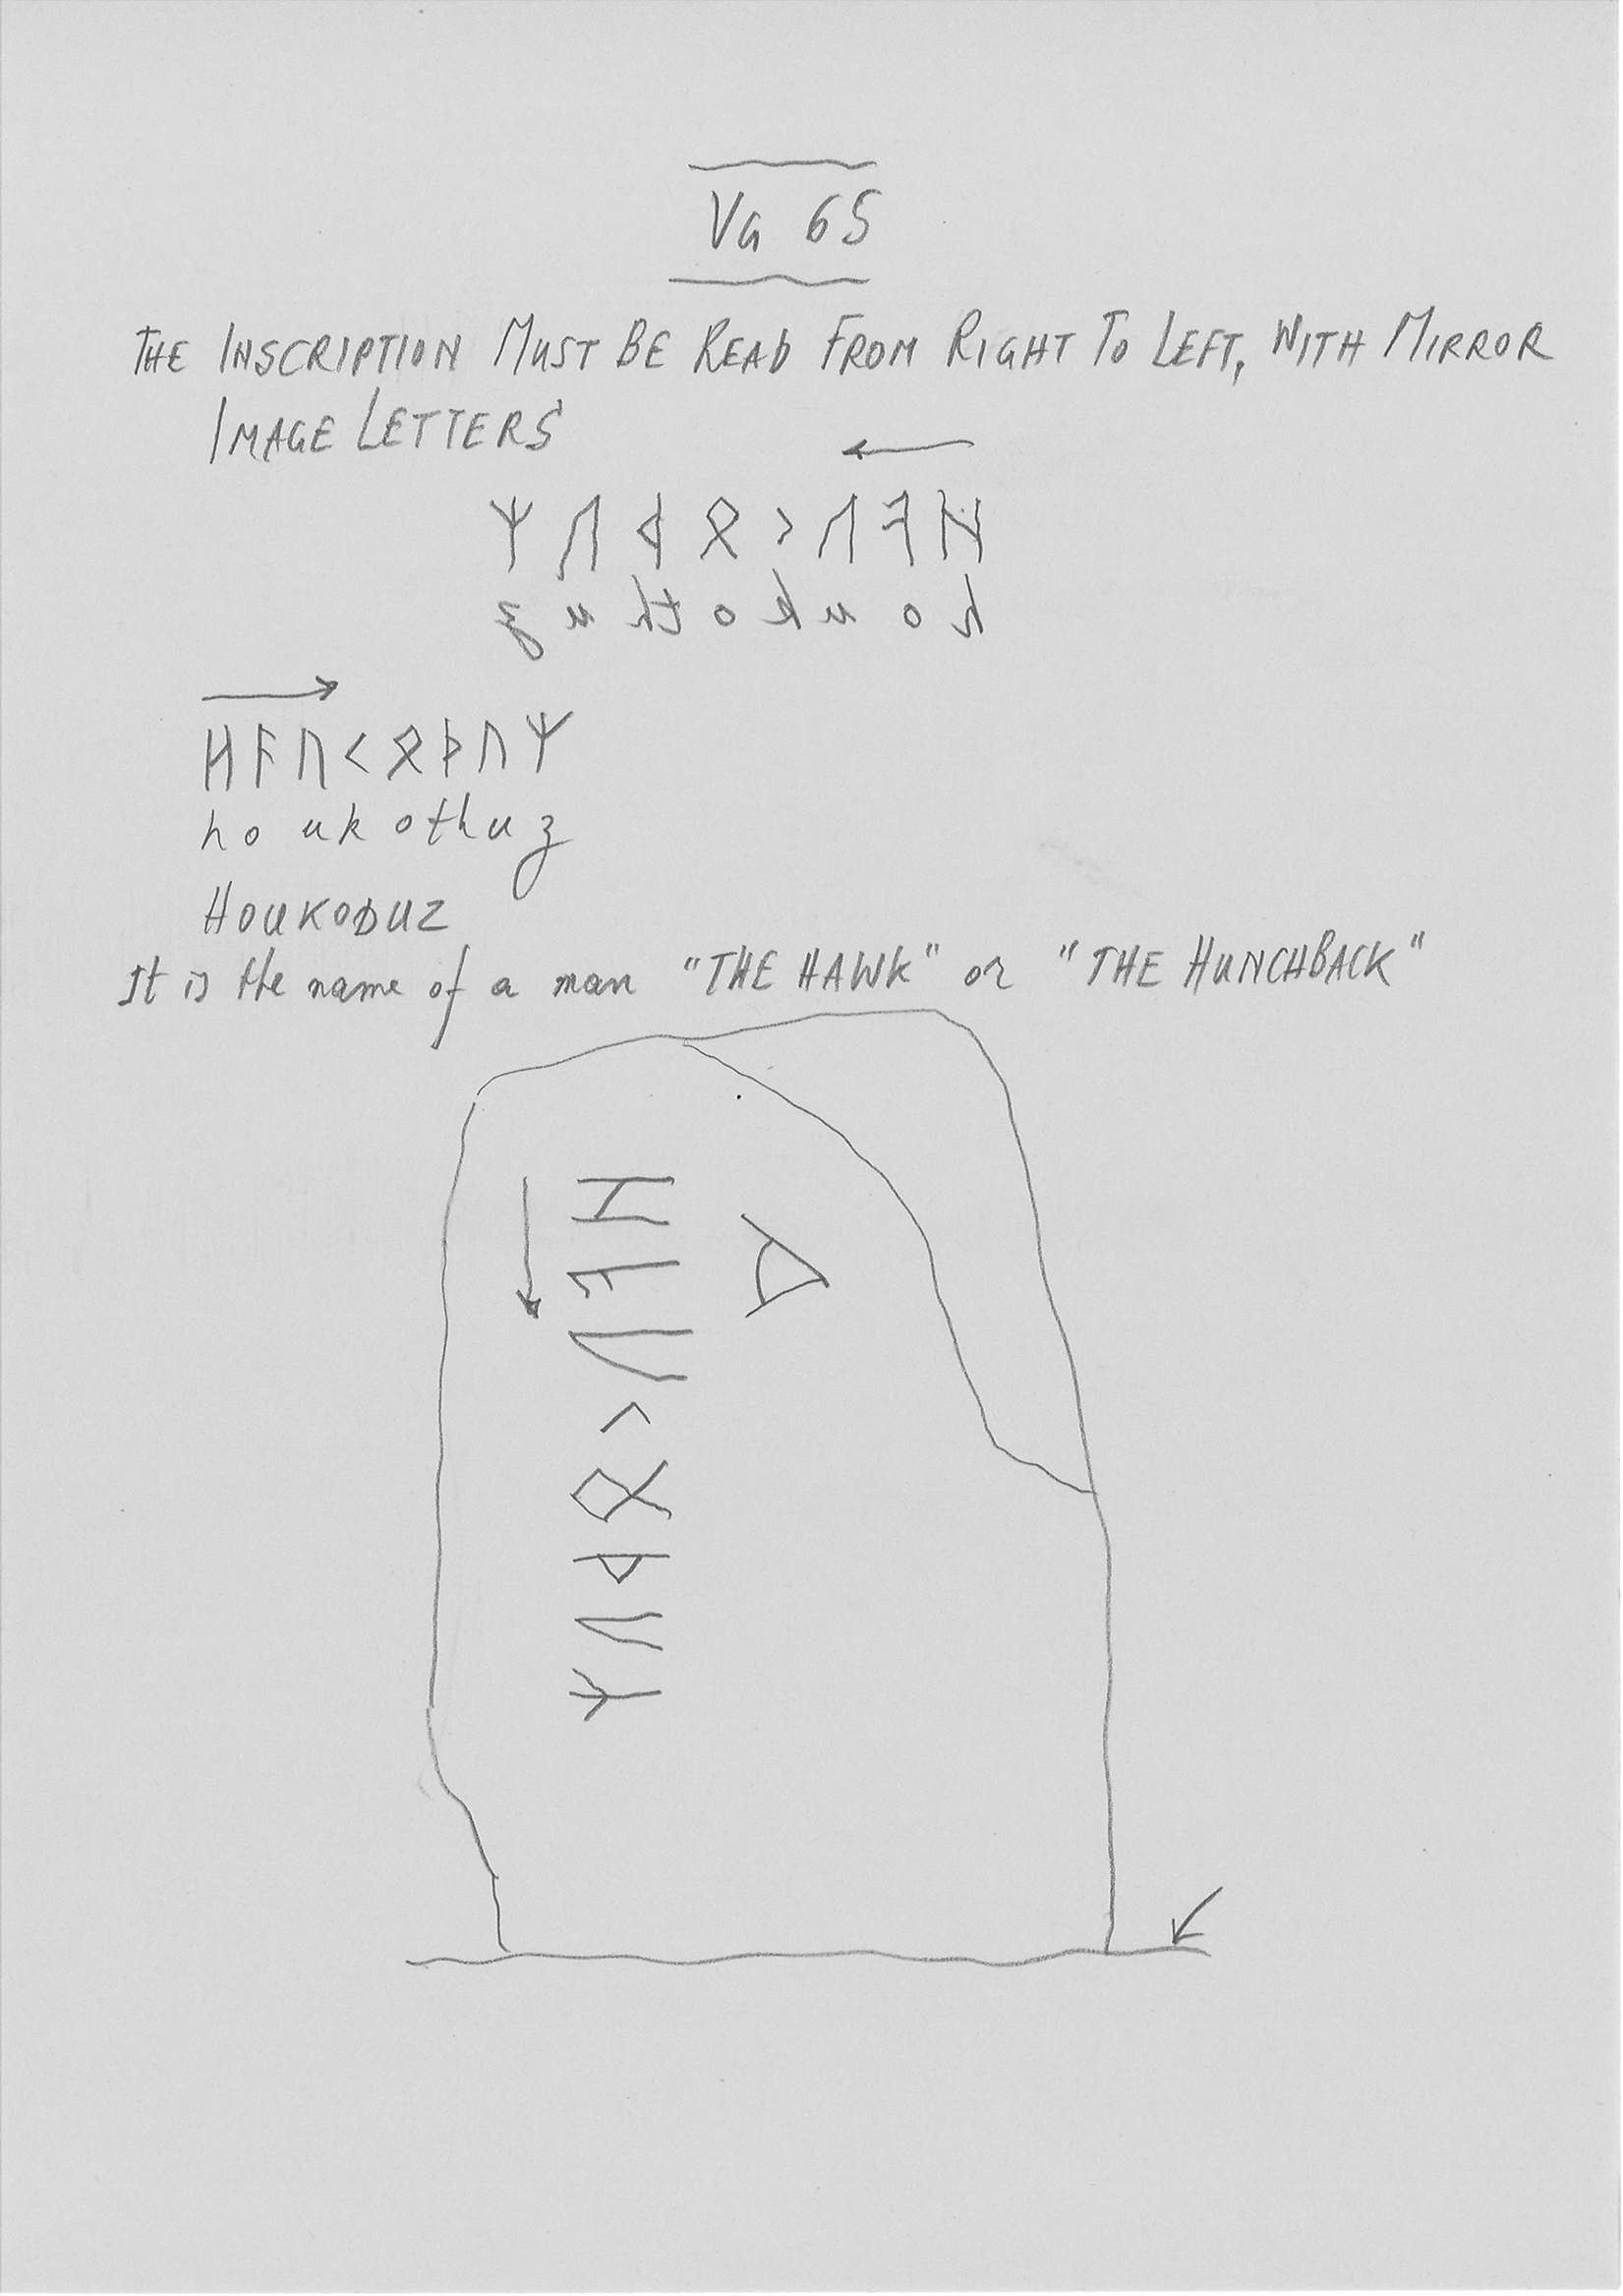 VG 65
THE INSCRIPTION MUST BE READ FROM RIGHT TO LEFT, WITH MIRROR
IMAGE LETTERS
ᛉᚢᚦᛟᚲᚢᚨᚺ
z u th o k u o h
ᚺᚨᚢᚲᛟᚦᚢᛉ
ho uk othuz
HOUKODUZ
It is the name of a man "THE HAWK" or "THE HUNCHBACK"
ᚺᚨᚢᚲᛟᚦᚢᛉ